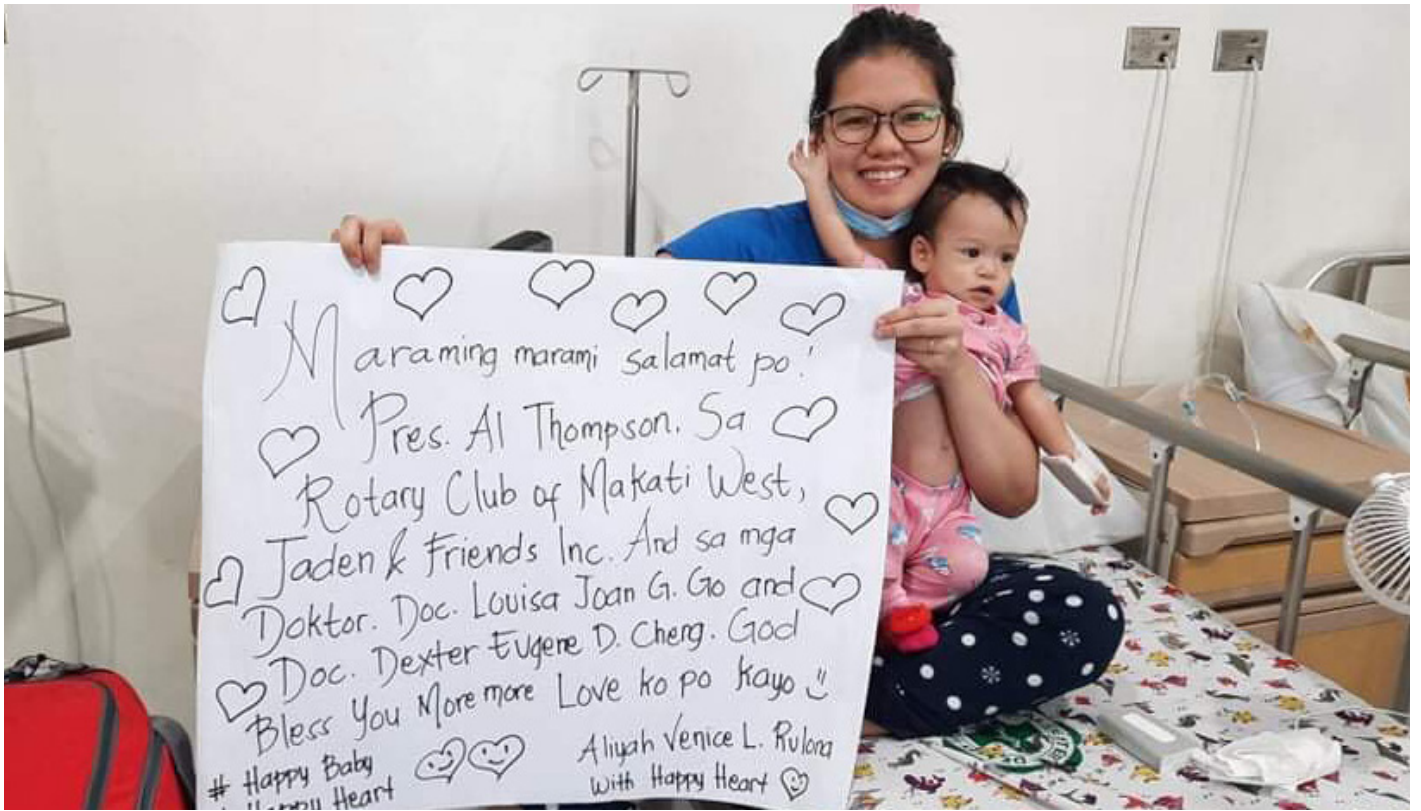 Maraming marami salamat po!
Pres. Al Thompson. Sa
Rotary Club of Makati West,
Jaden & Friends Inc. And sa mga
Doktor. Doc. Louisa Joan G. Go and
Doc. Dexter Eugene D. Cheng. God
Bless You More more Love ko po kayo
# Happy Baby
# Happy Heart
Aliyah Venice L. Rulona
With Happy Heart